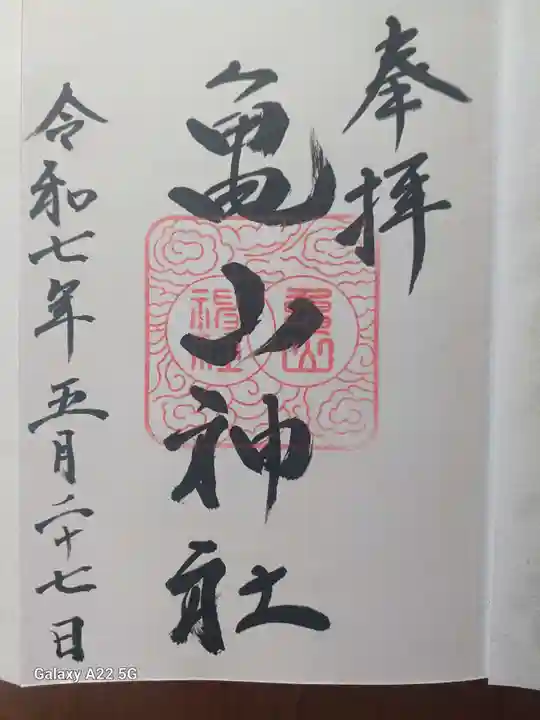 奉拝
亀山神社
亀山
神社
令和七年五月二十七日
Galaxy A22 5G